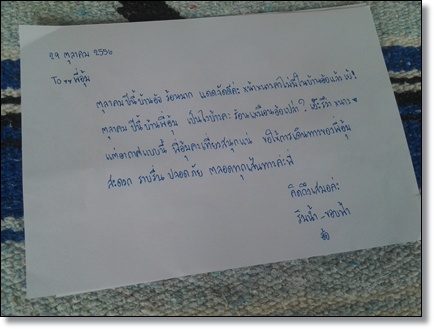 29 ตุลาคม 2556
To พี่อุ้ม
ตุลาคม ปีนี้บ้านอัง ร้อนมาก แดดจัดดีค่ะ หน้าหนาวคงไม่มีในบ้านอังแล้ว
ตุลาคม ปีนี้ บ้านพี่อุ้ม เป็นไงบ้างคะ ร้อนเหมือนอังเปล่า? หนาว
แต่อากาศแบบนี้ พี่อุ้มคงเที่ยวสนุกแน่ ขอให้การเดินทางของพี่อุ้ม
สะดวก ราบรื่น ปลอดภัย ตลอดทุกเส้นทางค่ะพี่
คิดถึงเสมอค่ะ
ริมน้ำ - ขอบฟ้า